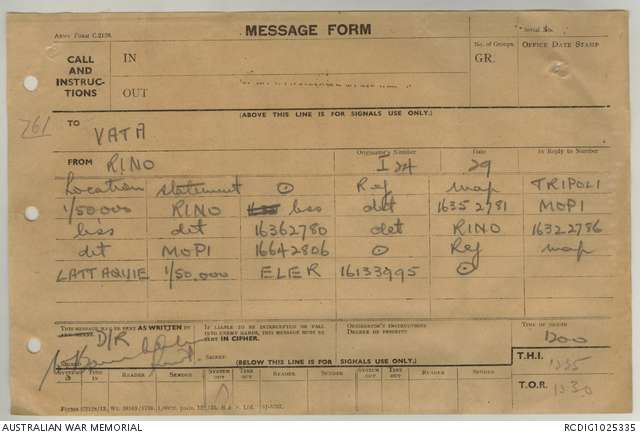 ARMY FORM C.2128.
MESSAGE FORM
Serial No.
CALL AND INSTRUC-TIONS
IN
OUT
No. of Groups.
GR.
OFFICE DATE STAMP
(ABOVE THIS LINE IS FOR SIGNALS USE ONLY.)
261
TO
VATA
FROM RINO
Originator's Number I 24
Date 29
In Reply to Number
Location statement ⊙ Ref map TRIPOLI
1/50.000 RINO less det 16352781 MOPI
less det 16362780 det RINO 16322786
det MOPI 16642806 ⊙ Ref map
LATTAQUIE 1/50.000 ELER 16133995 ⊙
THIS MESSAGE MAY BE SENT AS WRITTEN BY ANY MEANS.
D/R
IF LIABLE TO BE INTERCEPTED OR FALL INTO ENEMY HANDS, THIS MESSAGE MUST BE SENT IN CIPHER.
ORIGINATOR'S INSTRUCTIONS
DEGREE OF PRIORITY
TIME OF ORIGIN
1200
SIGNED
SIGNED
(BELOW THIS LINE IS FOR SIGNALS USE ONLY.)
T.H.I. 1225
T.O.R. 1230
SYSTEM IN TIME IN READER SENDER SYSTEM OUT TIME OUT READER SENDER SYSTEM OUT TIME OUT READER SENDER
AUSTRALIAN WAR MEMORIAL
RCDIG1025335